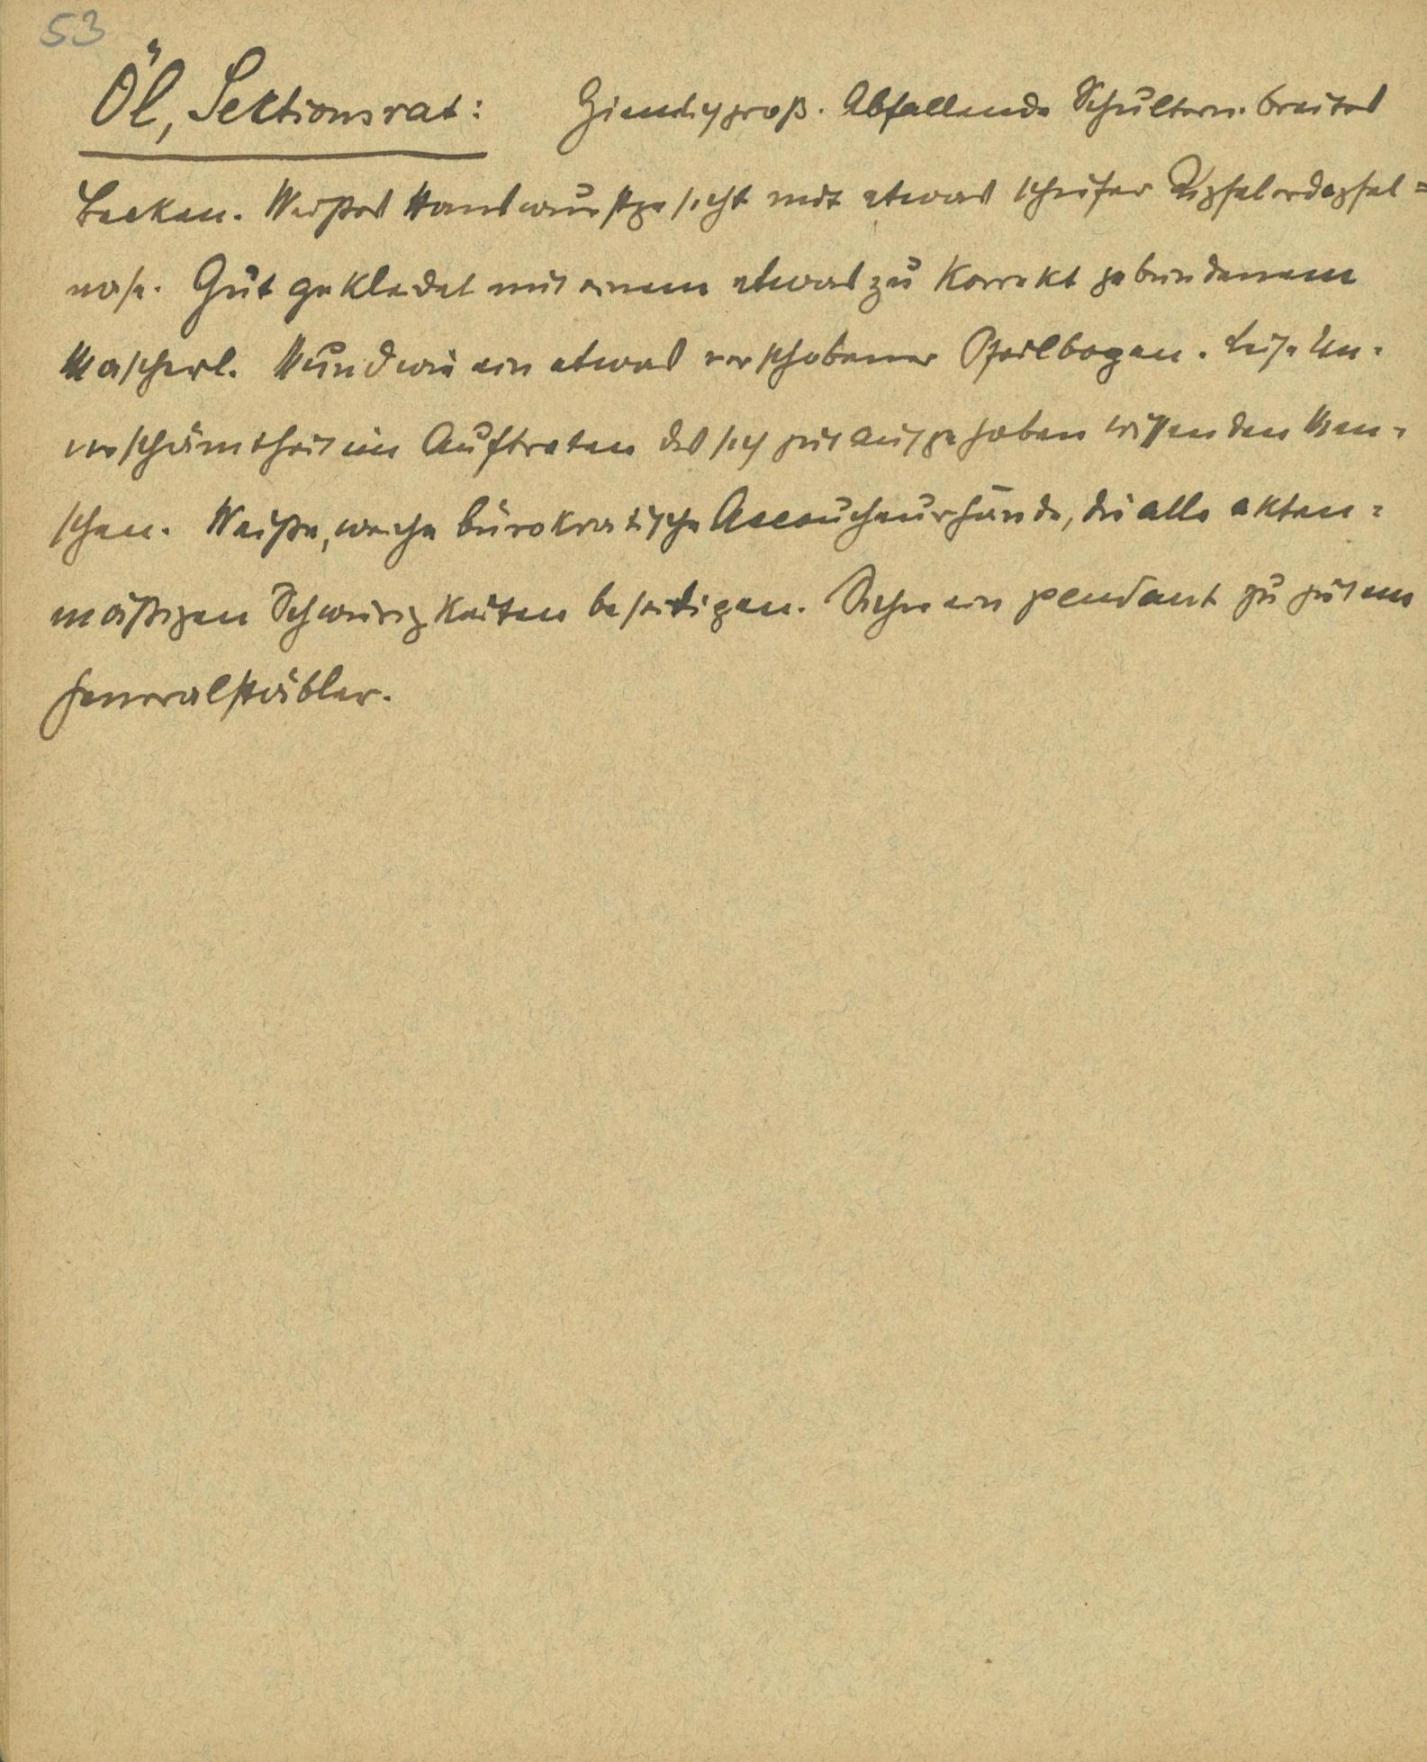 53
Öl, Sektionsrat: Ziemlich groß. Abfallende Schultern. breites
Becken. Weißes Hanswurstgesicht mit etwas schiefer Kipfelerdapfel=
nase. Gut gekleidet mit einem etwas zu korrekt gebundenem
Mascherl. Mund wie ein etwas verschobener Pfeilbogen. Leise Un-
verschämtheit im Auftreten des sich gut aufgehoben wissenden Men-
schen. Weiße, weiche bürokratische Accoucheurhände, die alle akten=
mäßigen Schwierigkeiten beseitigen. Sicher ein pendant zu gutem
Generalstäbler.